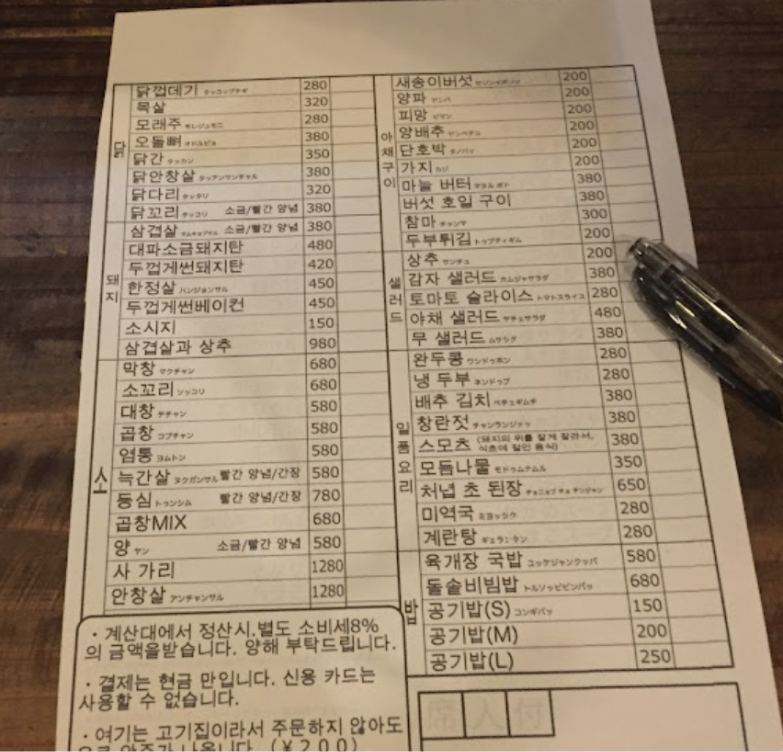 닭
닭껍데기 280
목살 320
모래주 モレジュモニ 280
오돌뼈 オドルピョ 380
닭간 タッカン 350
닭안창살 タッアンチャンサル 380
닭다리 タッタリ 320
닭꼬리 タッコリ 소금/빨간 양념 380
돼지
삼겹살 サムギョプサル 소금/빨간 양념 380
대파소금돼지탄 480
두껍게썬돼지탄 420
한정살 ハンジョンサル 450
두껍게썬베이컨 450
소시지 150
삼겹살과 상추 980
소
막창 マクチャン 680
소꼬리 ソッコリ 680
대창 テチャン 580
곱창 コプチャン 580
염통 ヨムトン 580
늑간살 ヌクガンサル 빨간 양념/간장 580
등심 トゥンシム 빨간 양념/간장 780
곱창MIX 680
양 ヤン 소금/빨간 양념 580
사 가리 1280
안창살 アンチャンサル 1280
・계산대에서 정산시,별도 소비세8%
의 금액을받습니다. 양해 부탁드립니다.
・결제는 현금 만입니다. 신용 카드는
사용할 수 없습니다.
・여기는 고기집이라서 주문하지 않아도
으로 안주가 나옵니다. (￥200)
야채구이
새송이버섯 200
양파 ヤンパ 200
피망 ピマン 200
양배추 ヤンペチュ 200
단호박 タノバッ 200
가지 カジ 200
마늘 버터 380
버섯 호일 구이 380
참마 チャンマ 300
두부튀김 トゥブティギム 200
샐러드
상추 サンチュ 200
감자 샐러드 カムジャサラダ 380
토마토 슬라이스 トマトスライス 280
야채 샐러드 ヤチェサラダ 480
무 샐러드 ムサラダ 380
일품요리
완두콩 ワンドゥコン 280
냉 두부 ネンドゥブ 280
배추 김치 ペチュギムチ 380
창란젓 チャンランジョッ 380
스모츠 (돼지의 위를 잘게 잘라서, 식초에 절인 음식) 380
모듬나물 モドゥムナムル 350
처녑 초 된장 チョニョプ チョ テンジャン 650
미역국 ミヨックク 280
계란탕 ギェランタン 280
밥
육개장 국밥 ユッケジャンクッパ 580
돌솥비빔밥 トルソッピビンパッ 680
공기밥(S) コンギパッ 150
공기밥(M) 200
공기밥(L) 250